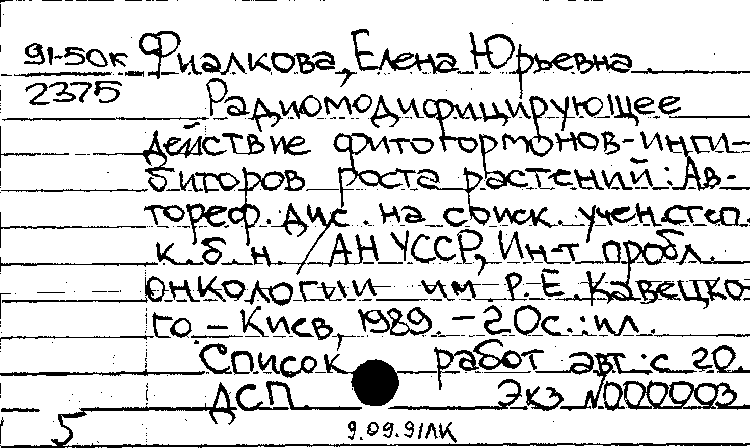 91-50к Фиалкова, Елена Юрьевна.
2375 Радиомодифицирующее
действие фитогормонов-инги-
биторов роста растений: Ав-
тореф. дис. на соиск. учен. степ.
к.б.н. / АН УССР, Ин-т пробл.
онкологии им. Р.Е. Кавецко-
го. – Киев, 1989. – 20с.: ил.
Список работ авт.: с 20.
ДСП. Экз N000003
5 9.09.91ЛК